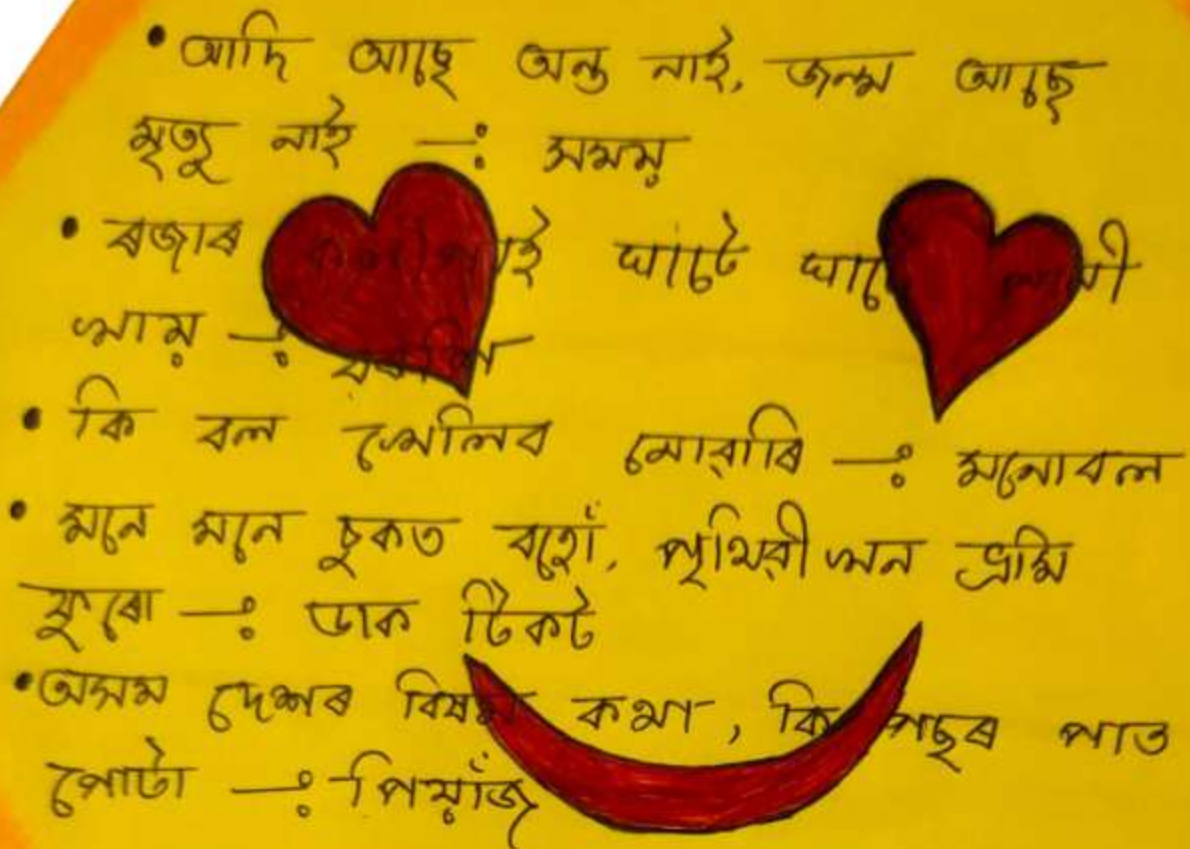 • আদি আছে অন্ত নাই, জন্ম আছে
মৃত্যু নাই —: সময়
• ৰজাৰ ঘাটে
খায় —:
• কি বল খেলিব নোৱাৰি —: মনোবল
• মনে মনে চুকত বহোঁ, পৃথিৱী খন ভ্ৰমি
ফুৰো —: ডাক টিকট
• অসম দেশৰ বিষম কথা, কি গছৰ পাত
পোটা —: পিয়াঁজ